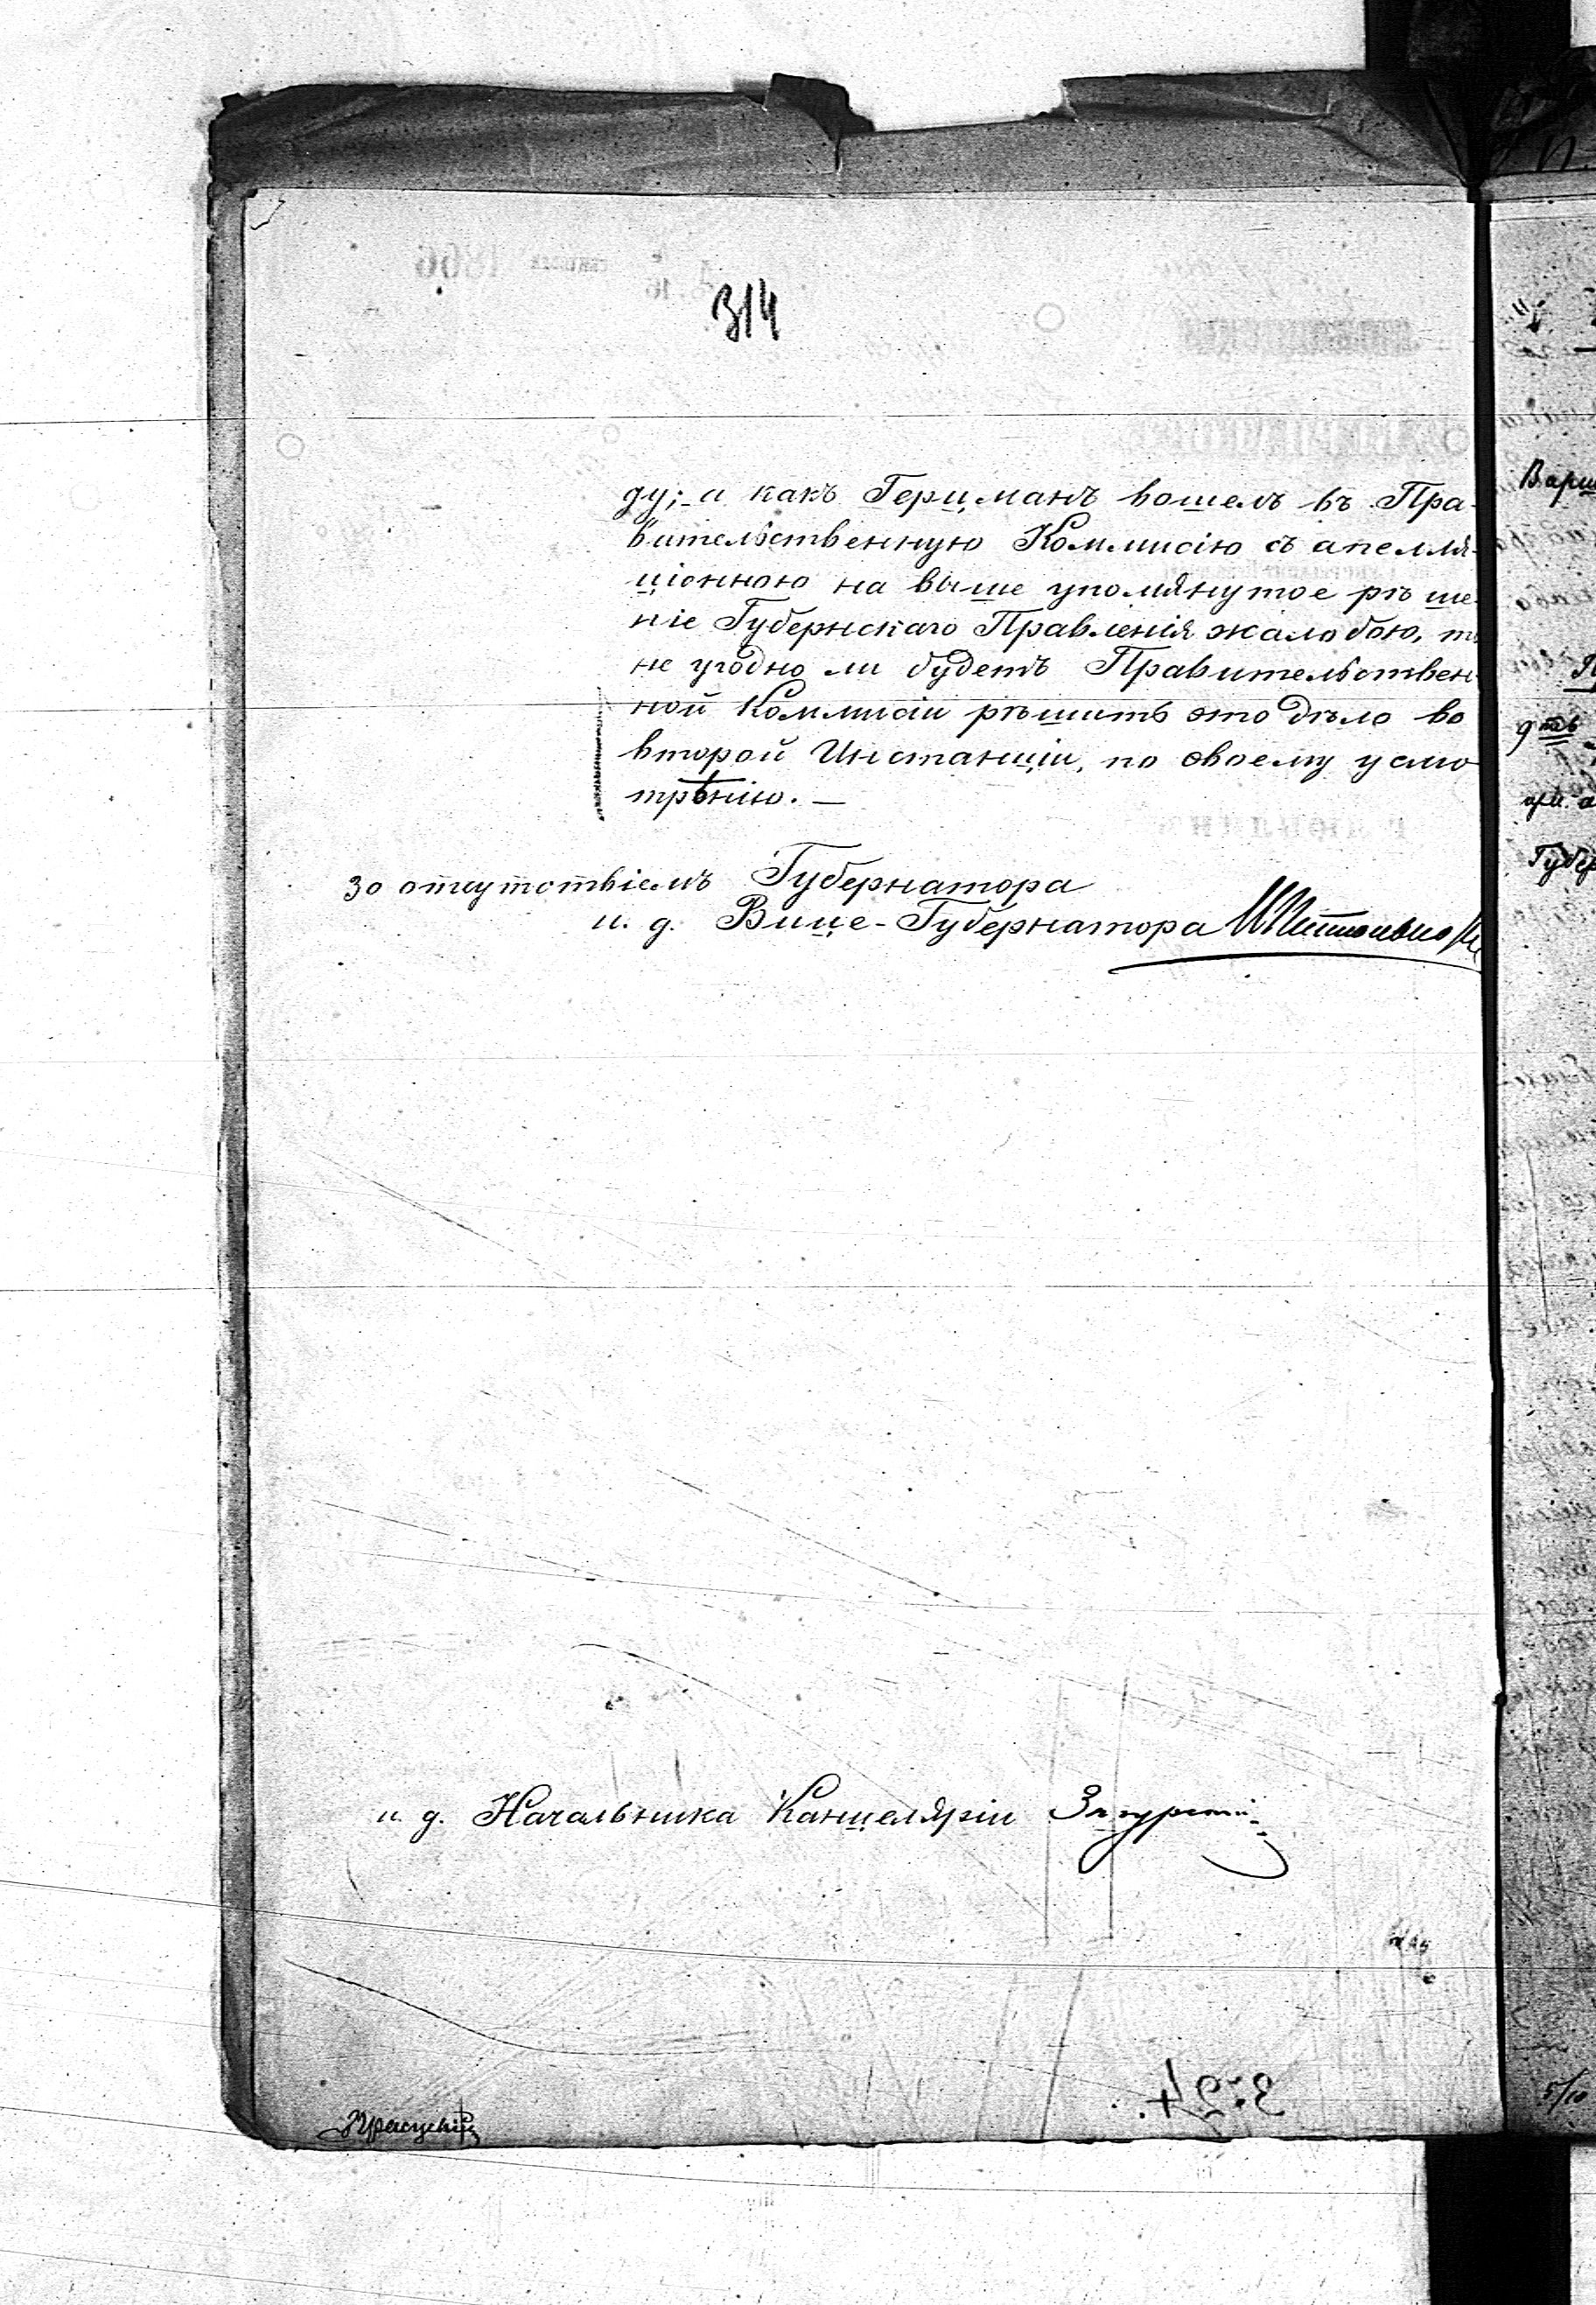 314
ду; а какъ Герцманъ вошелъ въ Пра-
вительственную Коммисію съ апелля-
ціонною на выше упомянутое рѣше-
ніе Губернскаго Правленія жалобою, то
не угодно ли будетъ Правительствен-
ной Коммисіи рѣшить это дѣло во
второй Инстанціи, по своему усмо
трѣнію. —
За отсутствіемъ Губернатора
и. д. Вице-Губернатора
и. д. Начальника Канцеляріи
Варш
Губер